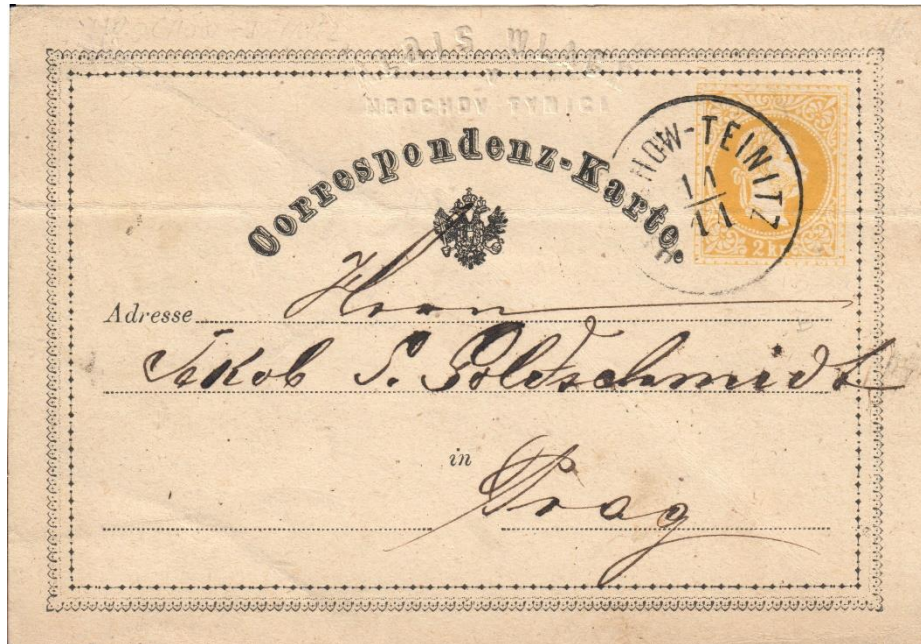 HROCHOV TYNICI
Correspondenz-Karte.
NOW-TEINITZ
11
11
2 kr
Adresse Herrn
Jakob S. Goldschmidt
in
Prag